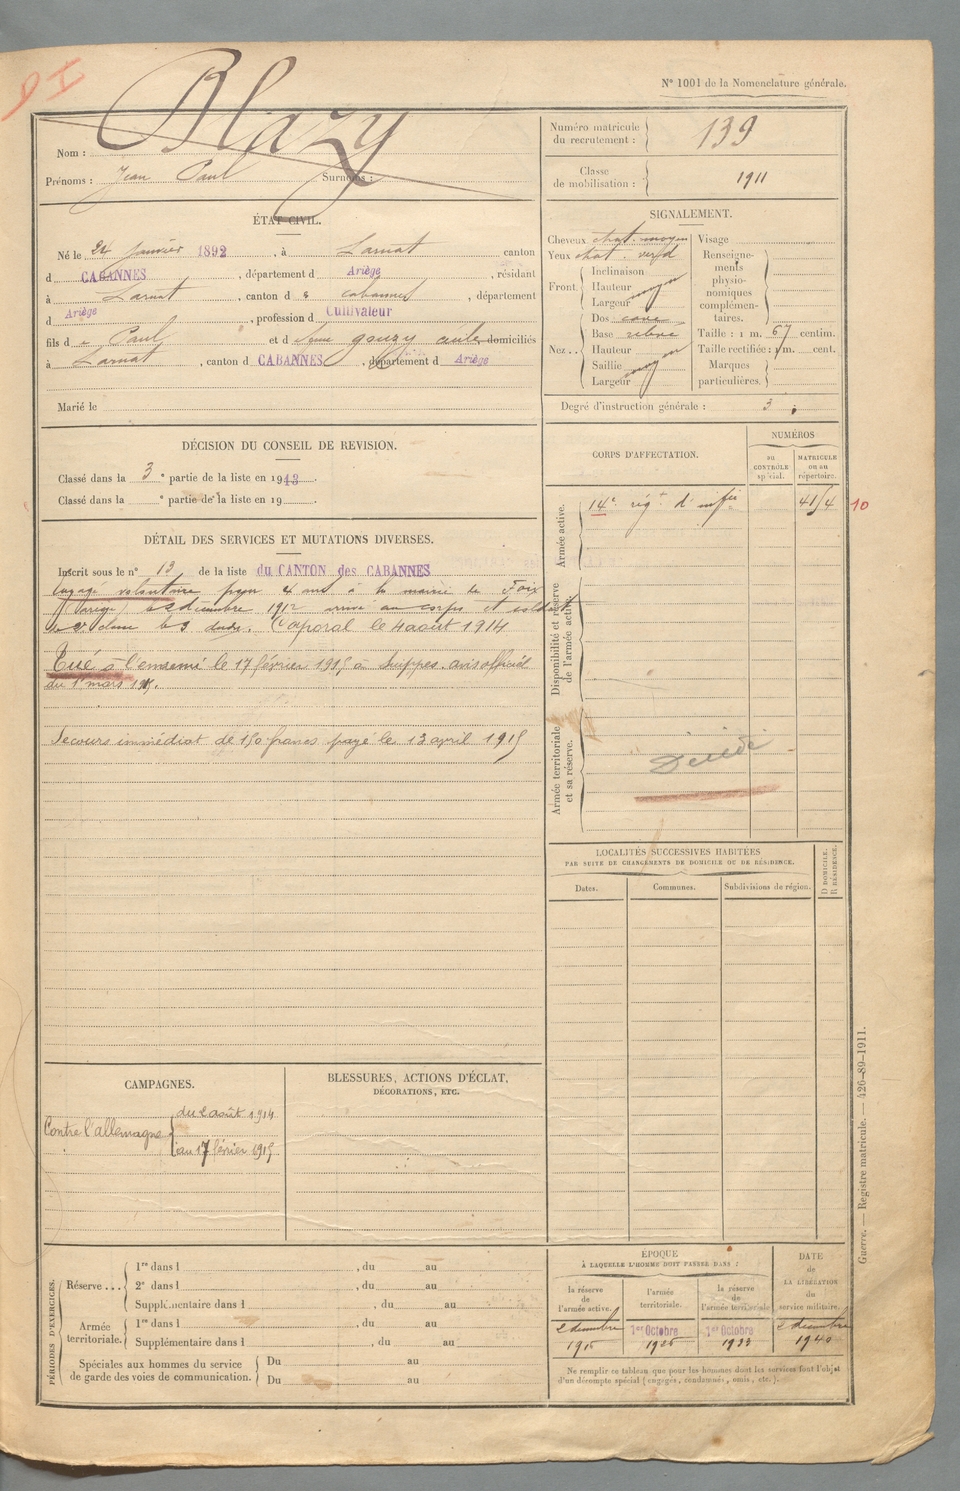 N° 1001 de la Nomenclature générale.
Nom : Blazy
Prénoms : Jean Paul Surnoms :
Numéro matricule du recrutement : 139
Classe de mobilisation : 1911
ÉTAT CIVIL.
Né le 24 janvier 1892, à Larnat canton
d CABANNES, département d Ariège, résidant
à Larnat, canton d s cabannes, département
d Ariège, profession d Cultivateur
fils d e Paul et d gouzy domiciliés
à Larnat, canton d CABANNES, département d Ariège
Marié le
SIGNALEMENT.
Cheveux chat. moyen
Yeux chat. verd
Front. Inclinaison
Hauteur moyen
Largeur
Nez... Dos cave
Base relevé
Hauteur
Saillie moyen
Largeur
Visage
Renseignements physionomiques complémentaires.
Taille : 1 m. 67 centim.
Taille rectifiée : 1 m. cent.
Marques particulières.
Degré d'instruction générale : 3
DÉCISION DU CONSEIL DE REVISION.
Classé dans la 3e partie de la liste en 1913.
Classé dans la e partie de la liste en 19 .
CORPS D'AFFECTATION.
NUMÉROS
au CONTRÔLE spécial.
MATRICULE ou au répertoire.
Armée active.
14e régt d'infie 41/4 10
Disponibilité et réserve de l'armée active.
Armée territoriale et sa réserve.
Décédé
DÉTAIL DES SERVICES ET MUTATIONS DIVERSES.
Inscrit sous le n° 13 de la liste du CANTON des CABANNES
Engagé volontaire pour 4 ans à la mairie de Foix
(Ariège) décembre 1912 arrivé au corps et soldat
de 2e classe le 3 dudit. Caporal le 4 août 1914
Tué à l'ennemi le 17 février 1915 à Suippes. avis officiel
du 1er mars 1915.
Secours immédiat de 150 francs payé le 13 avril 1915
LOCALITÉS SUCCESSIVES HABITÉES
PAR SUITE DE CHANGEMENTS DE DOMICILE OU DE RÉSIDENCE.
Dates.
Communes.
Subdivisions de région.
D DOMICILE.
R RÉSIDENCE.
CAMPAGNES.
Contre l'allemagne du 2 août 1914
au 17 février 1915
BLESSURES, ACTIONS D'ÉCLAT,
DÉCORATIONS, ETC.
PÉRIODES D'EXERCICES.
Réserve... 1re dans l , du au
2e dans l , du au
Supplémentaire dans l , du au
Armée territoriale. 1re dans l , du au
Supplémentaire dans l , du au
Spéciales aux hommes du service de garde des voies de communication. Du au
Du au
ÉPOQUE
À LAQUELLE L'HOMME DOIT PASSER DANS :
la réserve de l'armée active.
l'armée territoriale.
la réserve de l'armée territoriale
DATE de LA LIBÉRATION du service militaire.
2 décembre 1915
1er Octobre 1926
1er Octobre 1933
2 décembre 1940
Ne remplir ce tableau que pour les hommes dont les services font l'objet
d'un décompte spécial (engagés, condamnés, omis, etc.).
Guerre. — Registre matricule. — 426-89-1911.